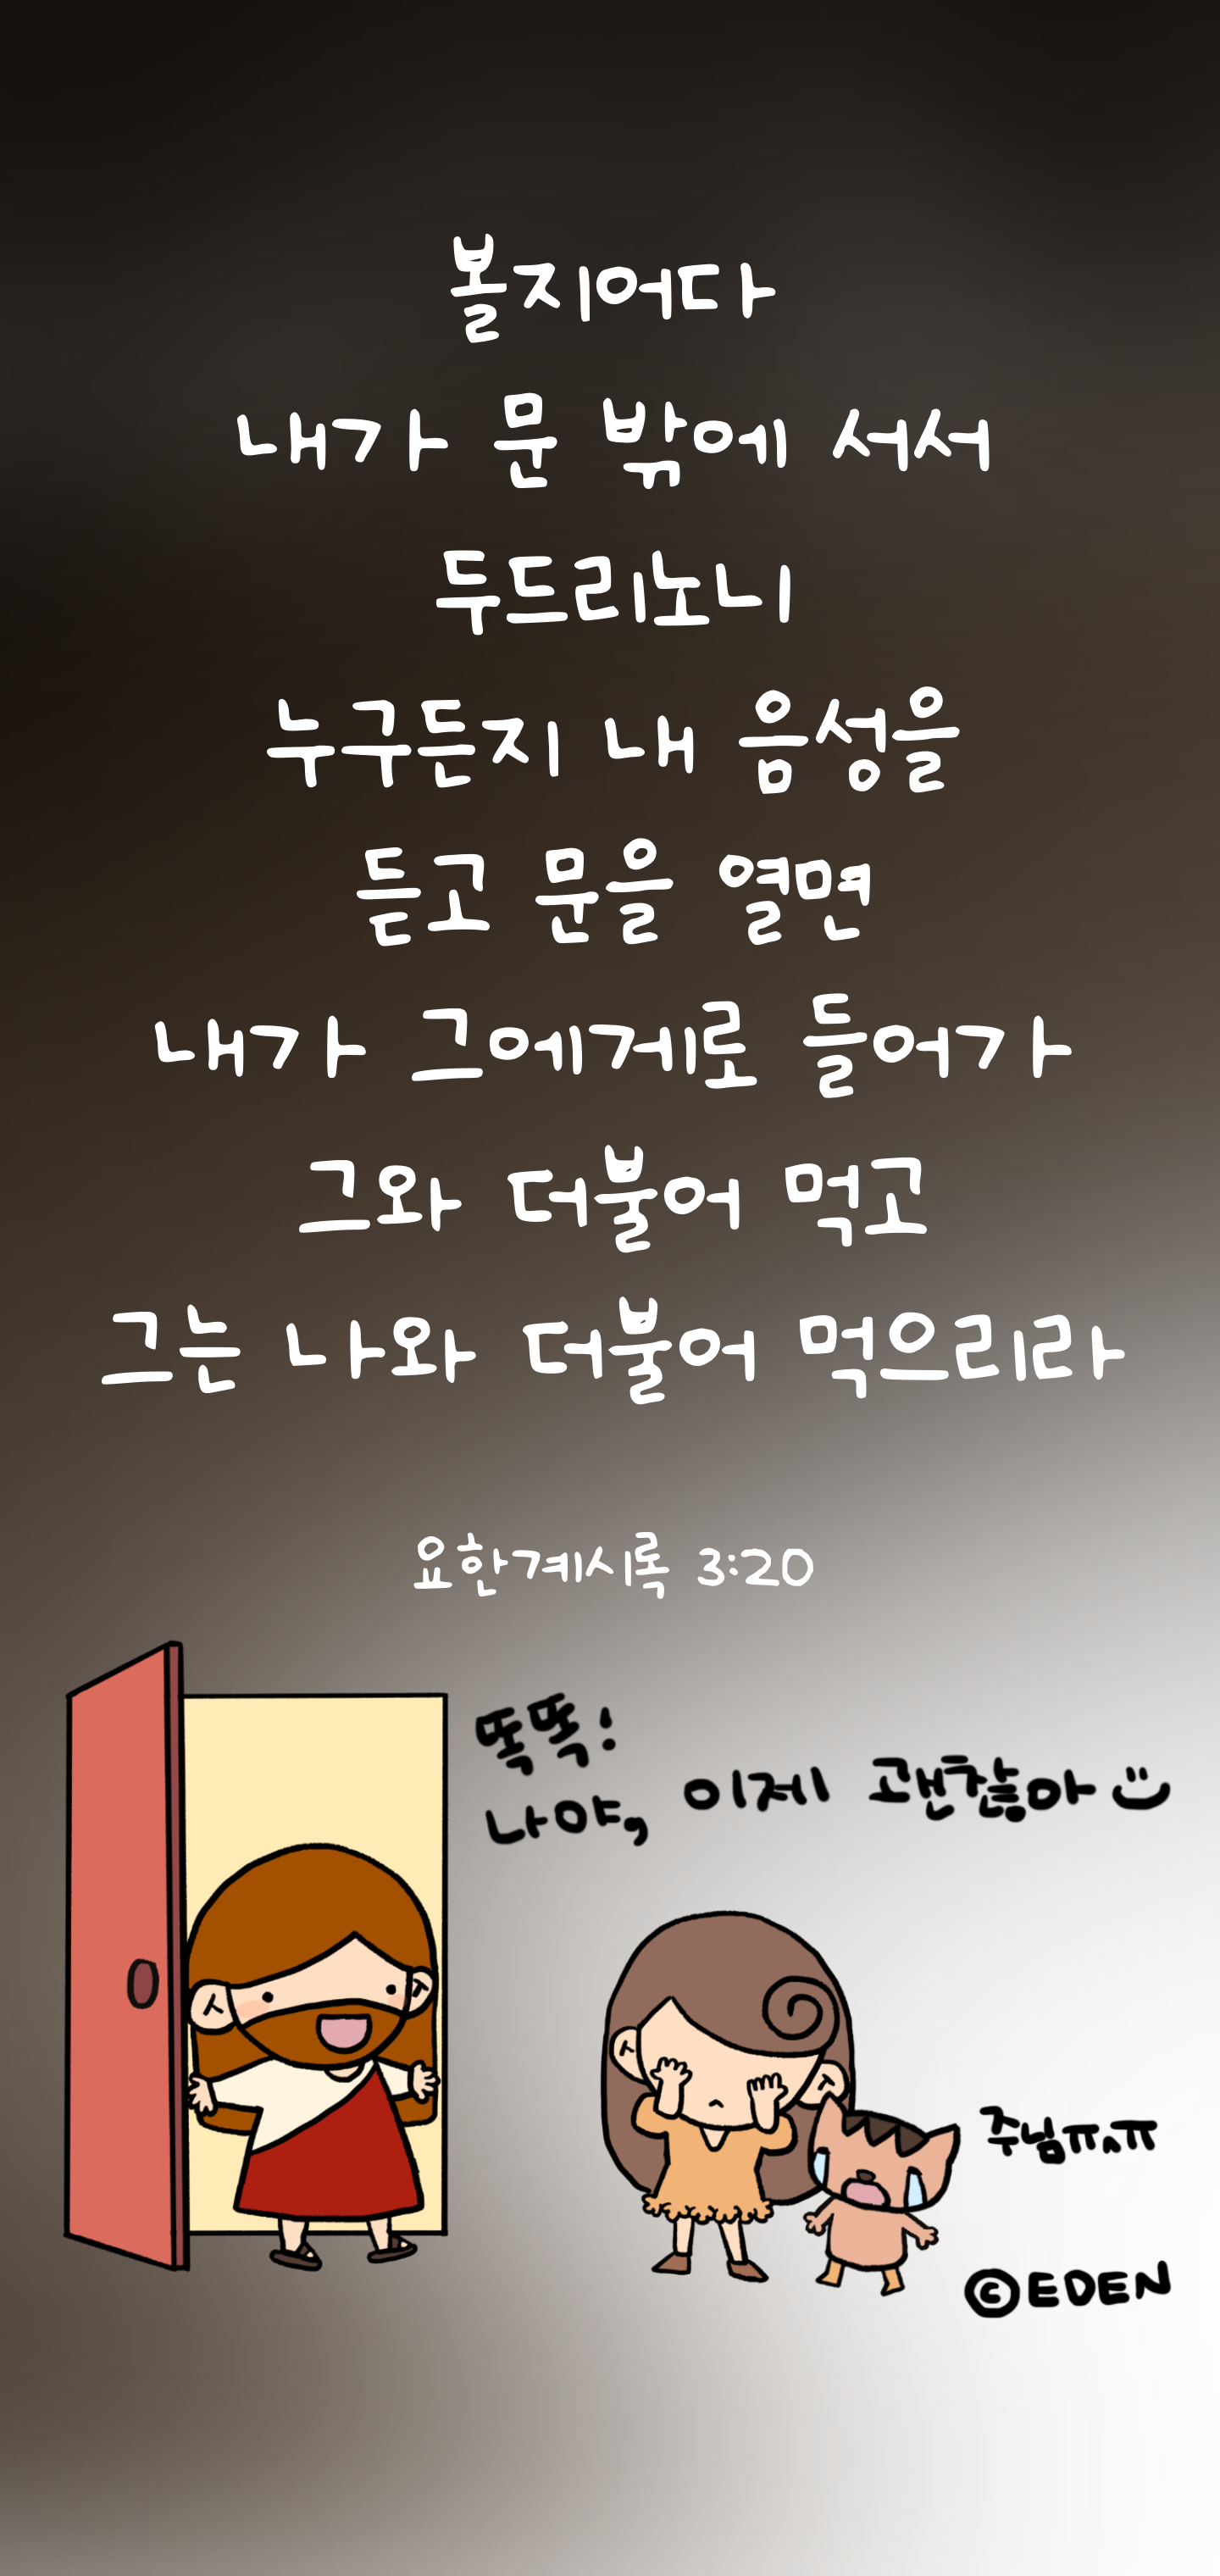 볼지어다
내가 문 밖에 서서
두드리노니
누구든지 내 음성을
듣고 문을 열면
내가 그에게로 들어가
그와 더불어 먹고
그는 나와 더불어 먹으리라
요한계시록 3:20
똑똑!
나야, 이제 괜찮아
주님ㅠㅅㅠ
©EDEN